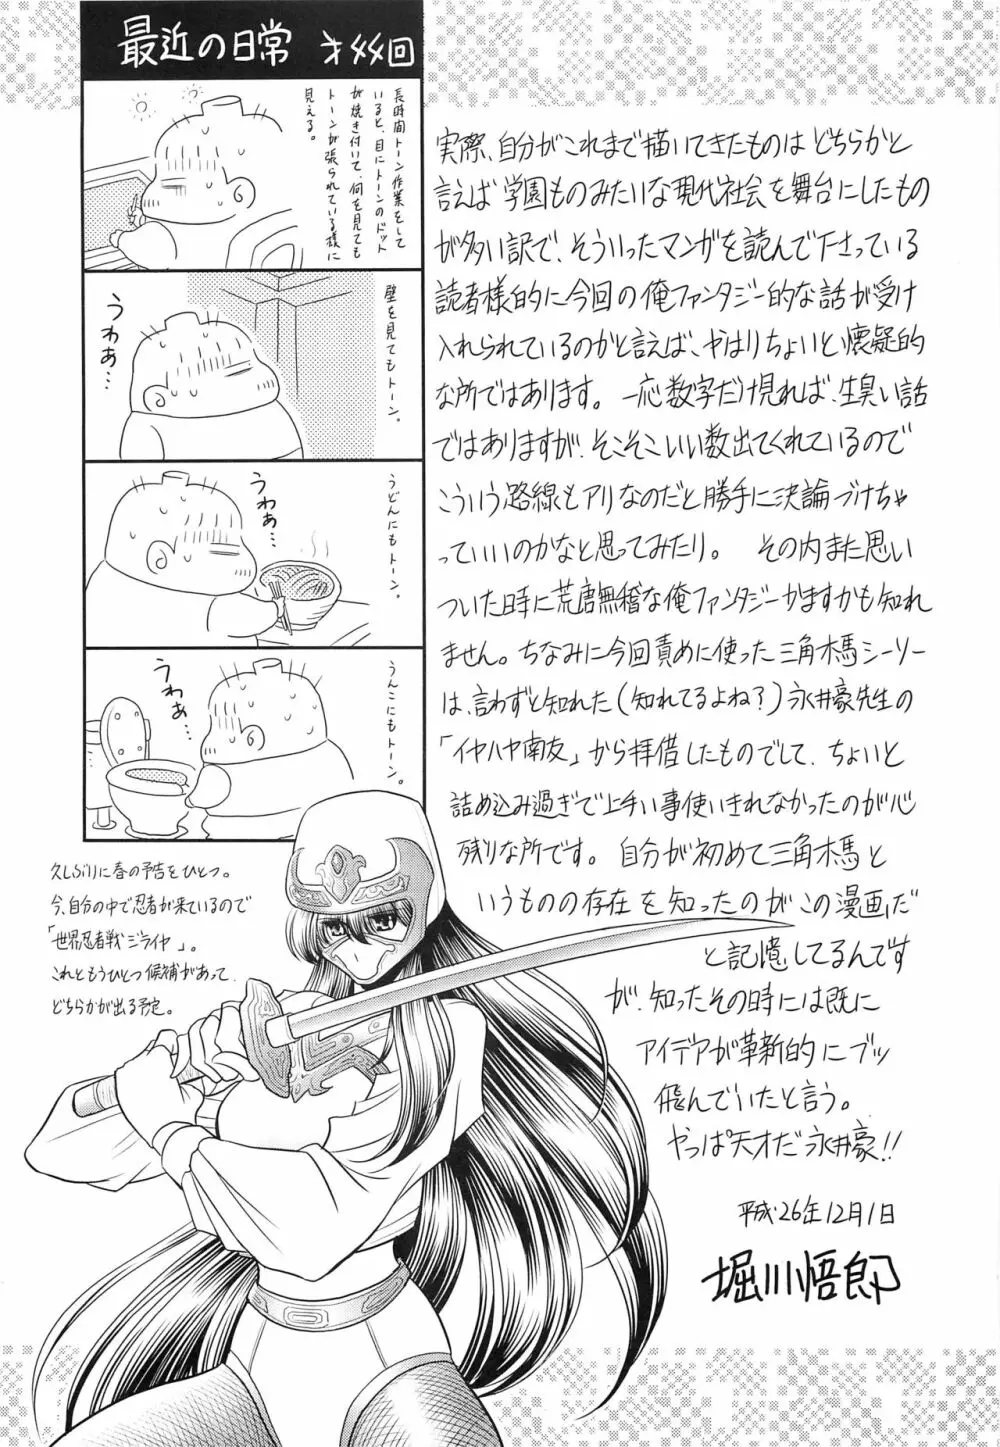 最近の日常 オ〆〆回
長時間トーン作業をして
いると、目にトーンのドット
が焼き付いて、何を見ても
トーンが張られている様に
見える。
壁を見てもトーン。
うわぁ…
うどんにもトーン。
うわぁ…
うんこにもトーン。
うわぁ…
実際、自分がこれまで描いてきたものはどちらかと
言えば学園ものみたいな現代社会を舞台にしたもの
が多い訳で、そういったマンガを読んで下さっている
読者様的に今回の俺ファンタジー的な話が受け
入れられているのかと言えば、やはりちょいと懐疑的
な所ではあります。一応数字だけ見れば、生臭い話
ではありますが、そこそこいい数出てくれているので
こういう路線もアリなのだと勝手に決論づけちゃ
っていいのかなと思ってみたり。 その内また思い
ついた時に荒唐無稽な俺ファンタジーかますかも知れ
ません。ちなみに今回責めに使った三角木馬シーソー
は、言わずと知れた(知れてるよね?)永井豪先生の
「イヤハヤ南友」から拝借したものでして、ちょいと
詰め込み過ぎで上手い事使いきれなかったのが心
残りな所です。自分が初めて三角木馬と
いうものの存在を知ったのがこの漫画だ
と記憶してるんです
が、知ったその時には既に
アイデアが革新的にブッ
飛んでいたと言う。
やっぱ天才だ永井豪!!
平成26年12月1日
堀川悟郎
久しぶりに春の予告をひとつ。
今、自分の中で忍者が来ているので
「世界忍者戦ジライヤ」。
これともうひとつ候補があって、
どちらかが出る予定。